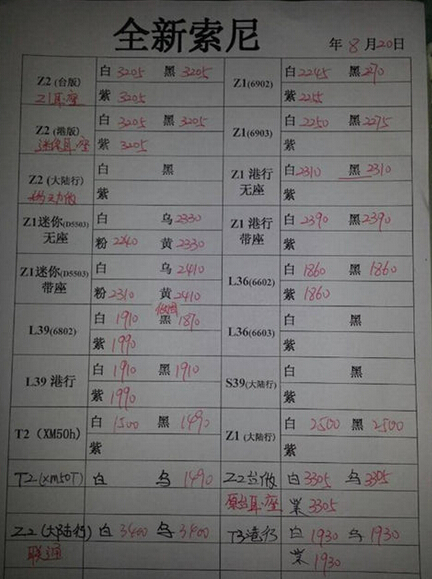 全新索尼
年 8 月 20 日
Z2 (台版) 白 3205 黑 3205
Z1耳座 紫 3205
Z1(6902) 白 2245 黑 2270
紫 2215
Z2 (港版) 白 3205 黑 3205
迷你耳座 紫 3205
Z1(6903) 白 2250 黑 2275
紫
Z2 (大陆行) 白 黑
移动做 紫
Z1 港行 无座 白 2310 黑 2310
紫
Z1迷你(D5503) 无座 白 乌 2330
粉 2240 黄 2330
Z1 港行 带座 白 2390 黑 2390
紫
Z1迷你(D5503) 带座 白 乌 2410
粉 2310 黄 2410
L36(6602) 白 1860 黑 1860
紫 1860
L39(6802) 白 1910 黑 1810
紫 1990
L36(6603) 白 黑
紫
L39 港行 白 1910 黑 1910
紫 1990
S39(大陆行) 白 黑
紫
T2 (XM50h) 白 1500 黑 1490
紫
Z1 (大陆行) 白 2500 黑 2500
紫
T2(xm50T) 白 乌 1490
Z2台做 白 3305 乌 3305
原台耳座 紫 3305
Z2 (大陆行) 白 3400 乌 3400
联通
T3港行 白 1930 乌 1930
紫 1930